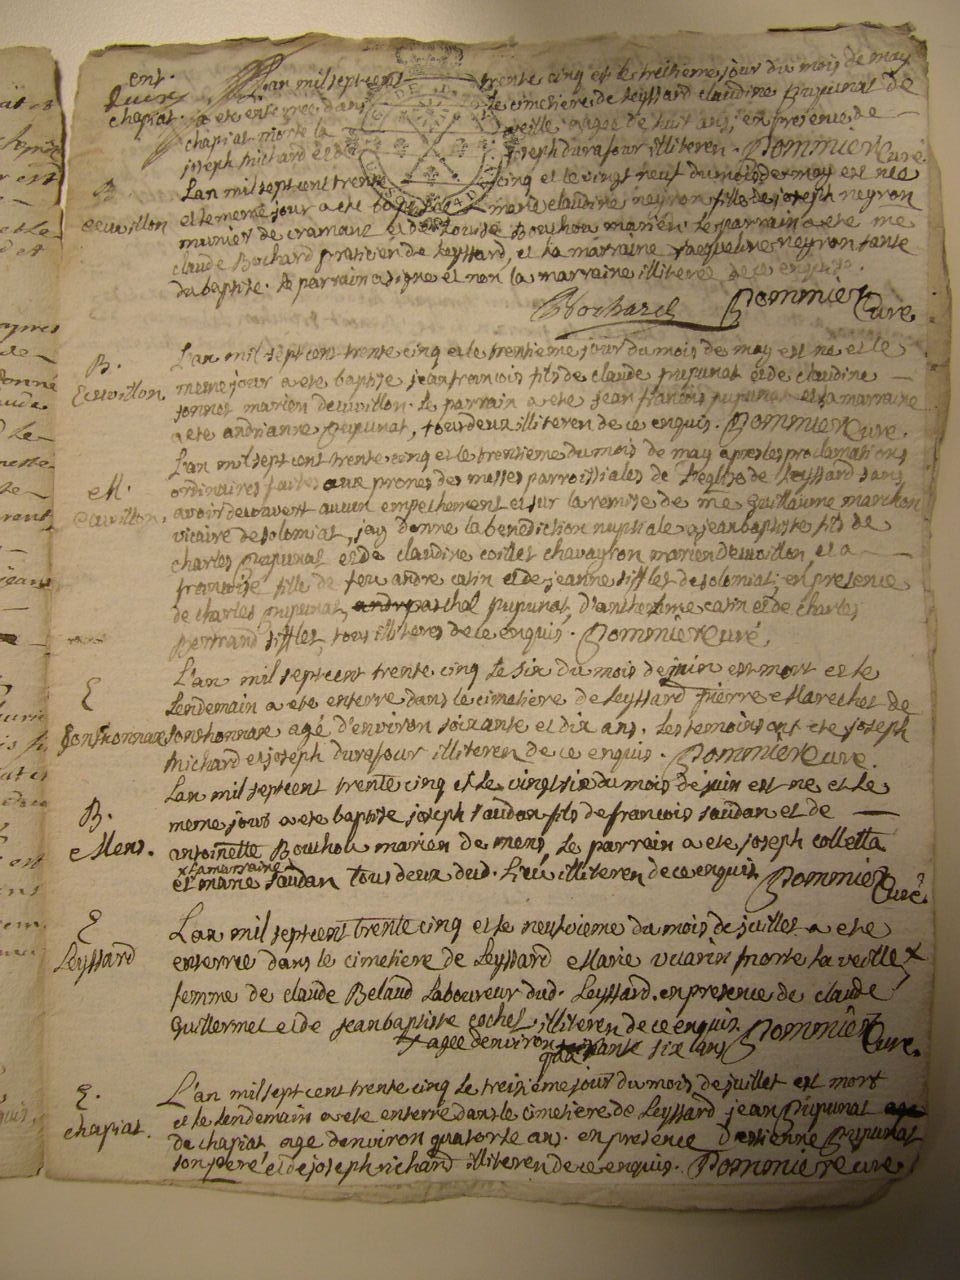 ent.
chapiat.
L'an mil sept cent trente cinq et le treisieme jour du mois de may
a ete enterree dans le cimetiere de leyssard claudine Pupunat de
chapiat morte la veille agee de huit ans, en presence de
joseph richard et de joseph durafour illiteren. Pommier Curé.
B.
L'an mil sept cent trente cinq et le vingt neuf du mois de may est née
cevvillon
et le meme jour a ete baptisée marie claudine neyron fille de joseph neyron
munier de cramant et de Louise Bouhou mariéen le parrain a ete me
claude Bochard praticien de leyssard, et la marraine Jacqueline neyron tante
du baptise. le parrain a signe et non la marraine illiteree de ce enquise.
Bochard Pommier Cure
B.
L'an mil sept cent trente cinq et le trentieme jour du mois de may est né et le
meme jour a ete baptise jean francois fils de claude pupunat et de claudine
marien . Le parrain a ete jean francois pupunat et la marraine
a ete andrianne Pupunat, tous deux illiteren de ce enquis. Pommier Cure.
L'an mil sept cent trente cinq et le trentieme du mois de may apres les proclamations
M.
ordinaires faites aux prones des messes parroissiales de l'eglise de leyssard sans
avoir decouvert aucun empechement et sur la remise de me Guillaume marchon
vicaire de solomiat, jay donne la benediction nuptiale a jean baptiste fils de
charles Pupunat et de claudine coillet chavayron marien , et a
francoise fille de feu andre catin et de jeanne siffles de solomiat; en presence
de charles pupunat, paschal pupunat, d'anthelme catin et de charles
Bertrand siffles, tous illiteres de ce enquis. Pommier Curé.
E
L'an mil sept cent trente cinq le six du mois de juin est mort et le
Lendemain a ete enterre dans le cimetiere de Leyssard Pierre Marechet de
sonthonnax agé d'environ soixante et dix ans. Les temoins ont ete joseph
richard et joseph durafour illiteren de ce enquis. Pommier Cure.
L'an mil sept cent trente cinq et le vingt six du mois de juin est ne et le
B.
meme jour a ete baptise joseph saudan fils de francois saudan et de
Mens.
antoinette Bouhou marien de mens, Le parrain a ete joseph colletta
x La marraine
et marie saudan tous deux dud. Lieu illiteren de ce enquis. Pommier Curé.
E
L'an mil sept cent trente cinq et le neufvieme du mois de juillet a ete
Leyssard
enterrée dans le cimetiere de Leyssard Marie vuarin morte la veille x
femme de claude Belaud Laboureur dud. Leyssard. en presence de claude
Guillermet et de jean baptiste cochet, illiteren de ce enquis. Pommier Cure.
x agée d'environ quarante six ans
E.
L'an mil sept cent trente cinq le treizieme jour du mois de juillet est mort
chapiat.
et le Lendemain a ete enterré dans le cimetiere de Leyssard jean Pupunat
de chapiat age d'environ quatorze ans. en presence d'estienne Pupunat
son pere et de joseph richard illiteren de ce enquis. Pommier Cure